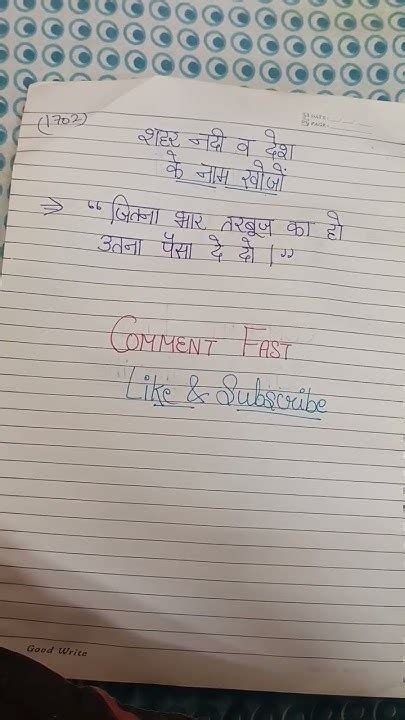 (1702)
DATE: 
PAGE: 
शहर नदी व देश
के नाम खोजों
⇒ “ जितना भार तरबूज का हो
उतना पैसा दे दो । ”
COMMENT FAST
Like & Subscribe
Good Write